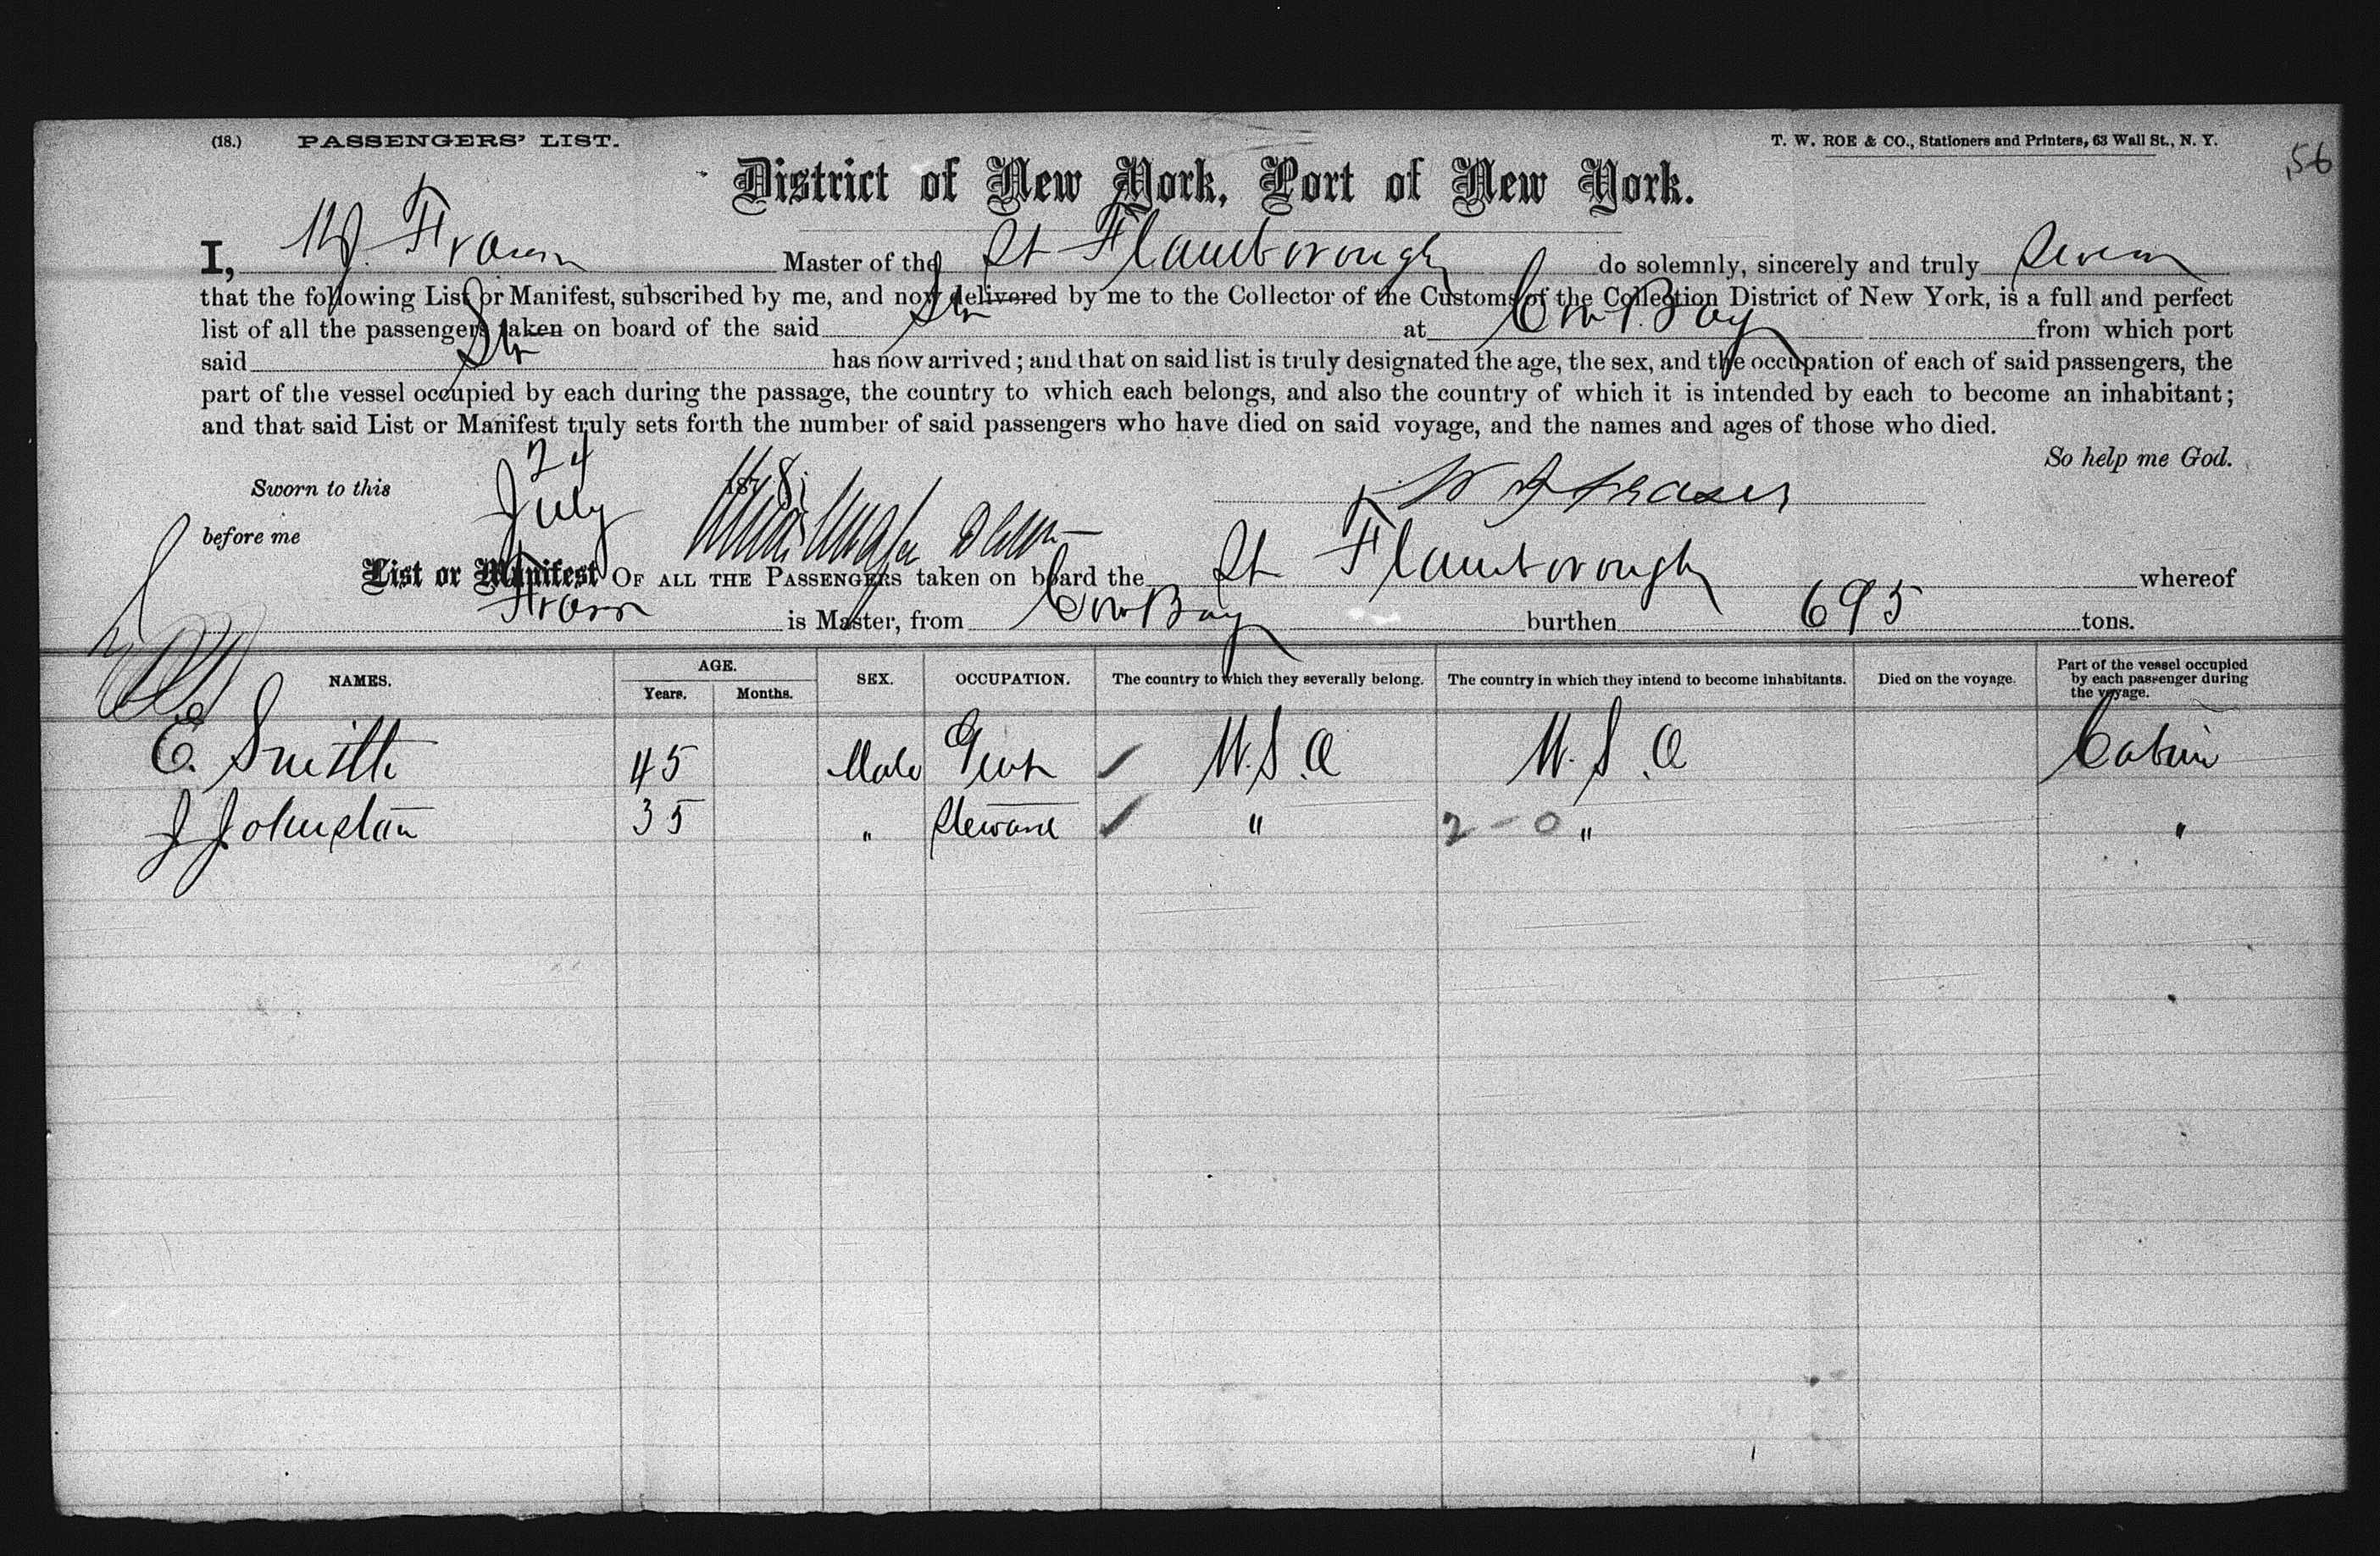 (18.) PASSENGERS' LIST. T. W. ROE & CO., Stationers and Printers, 63 Wall St., N. Y.
56
District of New York, Port of New York.
I, Master of the St Flamborough do solemnly, sincerely and truly swear
that the following List or Manifest, subscribed by me, and now delivered by me to the Collector of the Customs of the Collection District of New York, is a full and perfect
list of all the passengers taken on board of the said Str at Cow Bay from which port
said Str has now arrived; and that on said list is truly designated the age, the sex, and the occupation of each of said passengers, the
part of the vessel occupied by each during the passage, the country to which each belongs, and also the country of which it is intended by each to become an inhabitant;
and that said List or Manifest truly sets forth the number of said passengers who have died on said voyage, and the names and ages of those who died.
So help me God.
Sworn to this 24 July 1878
W Fraser
before me
List or Manifest OF ALL THE PASSENGERS taken on board the St Flamborough whereof
is Master, from Cow Bay burthen 695 tons.
NAMES. AGE. Years. Months. SEX. OCCUPATION. The country to which they severally belong. The country in which they intend to become inhabitants. Died on the voyage. Part of the vessel occupied by each passenger during the voyage.
E. Smith 45 Male Gent U.S.A U.S.A Cabin
J Johnston 35 " Steward " 2-0 " "